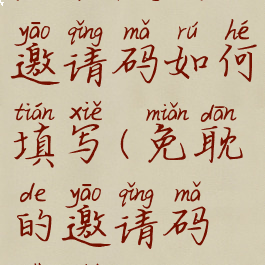 yāo qǐng mǎ rú hé
邀请码如何
tián xiě miǎn dān
填写(免耽
de yāo qǐng mǎ
的邀请码